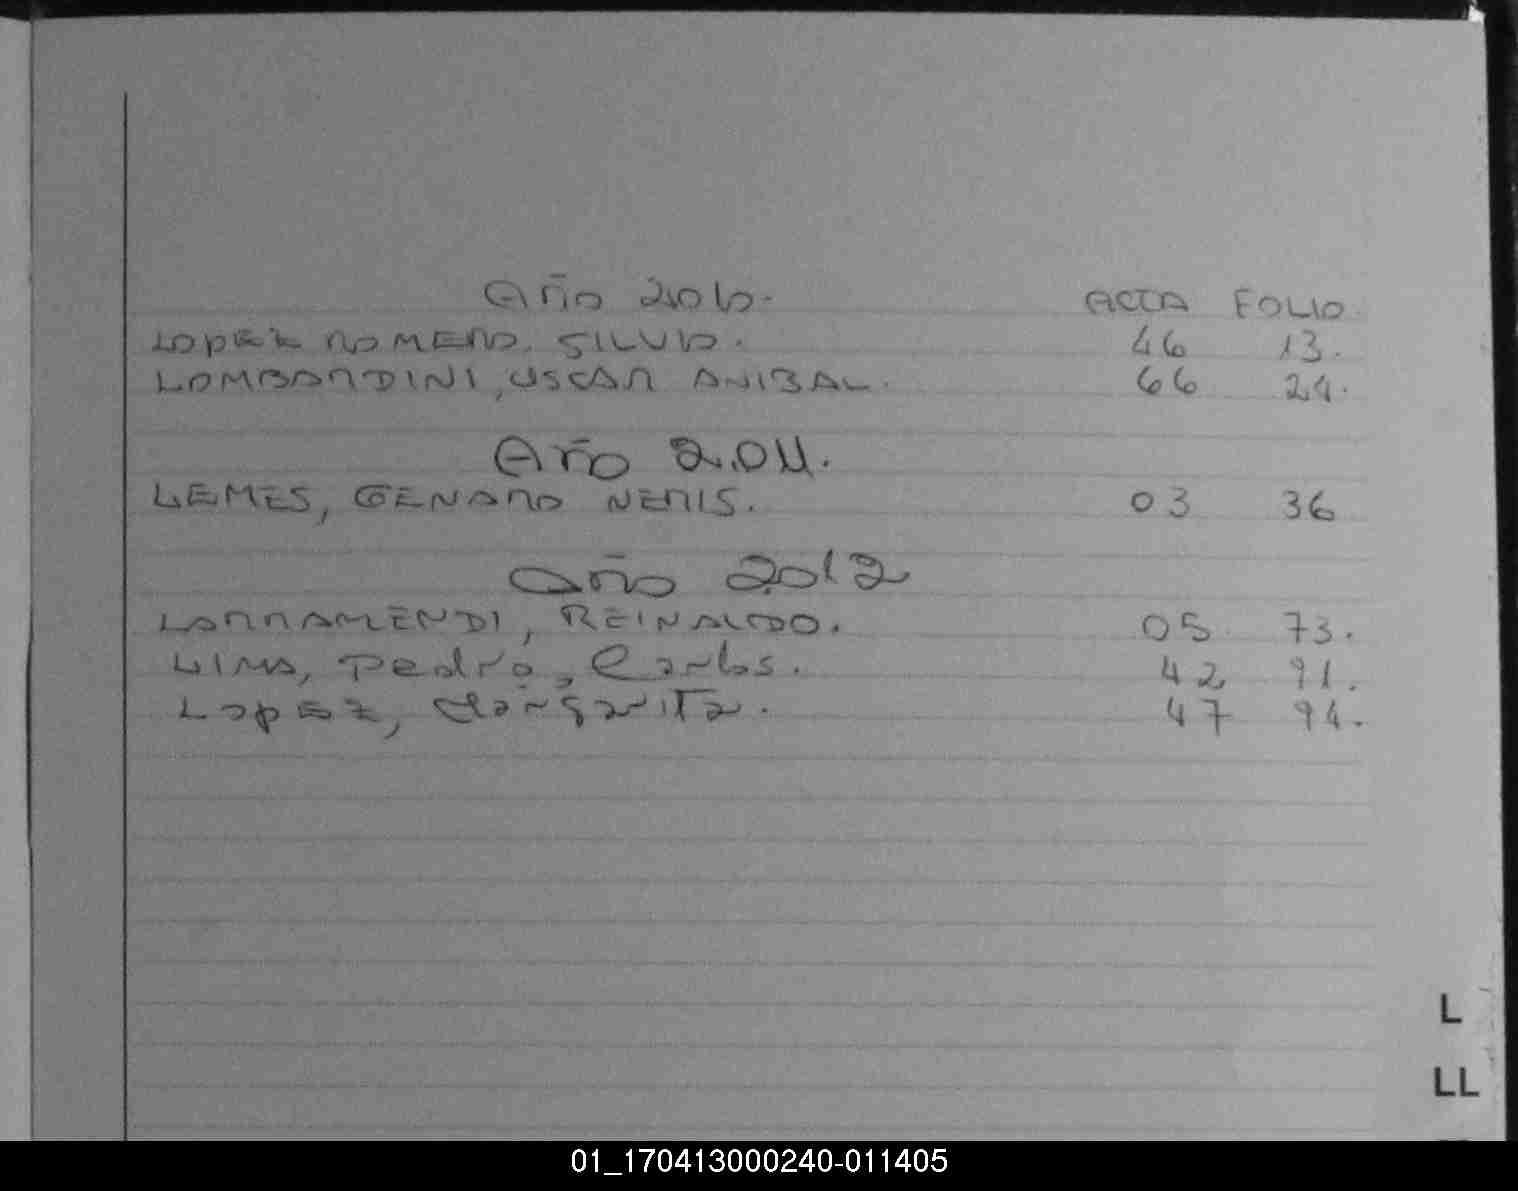 Año 2.010. ACTA FOLIO
LOPEZ ROMERO, SILVIO. 46 13.
LOMBARDINI, OSCAR ANIBAL. 66 24.
Año 2.011.
LEMES, GENARO NERIS. 03 36
Año 2.012
LARRAMENDI, REINALDO. 05 73.
LIMA, Pedro, Carlos. 42 91.
Lopez, Margarita. 47 94.
L
LL
01_170413000240-011405